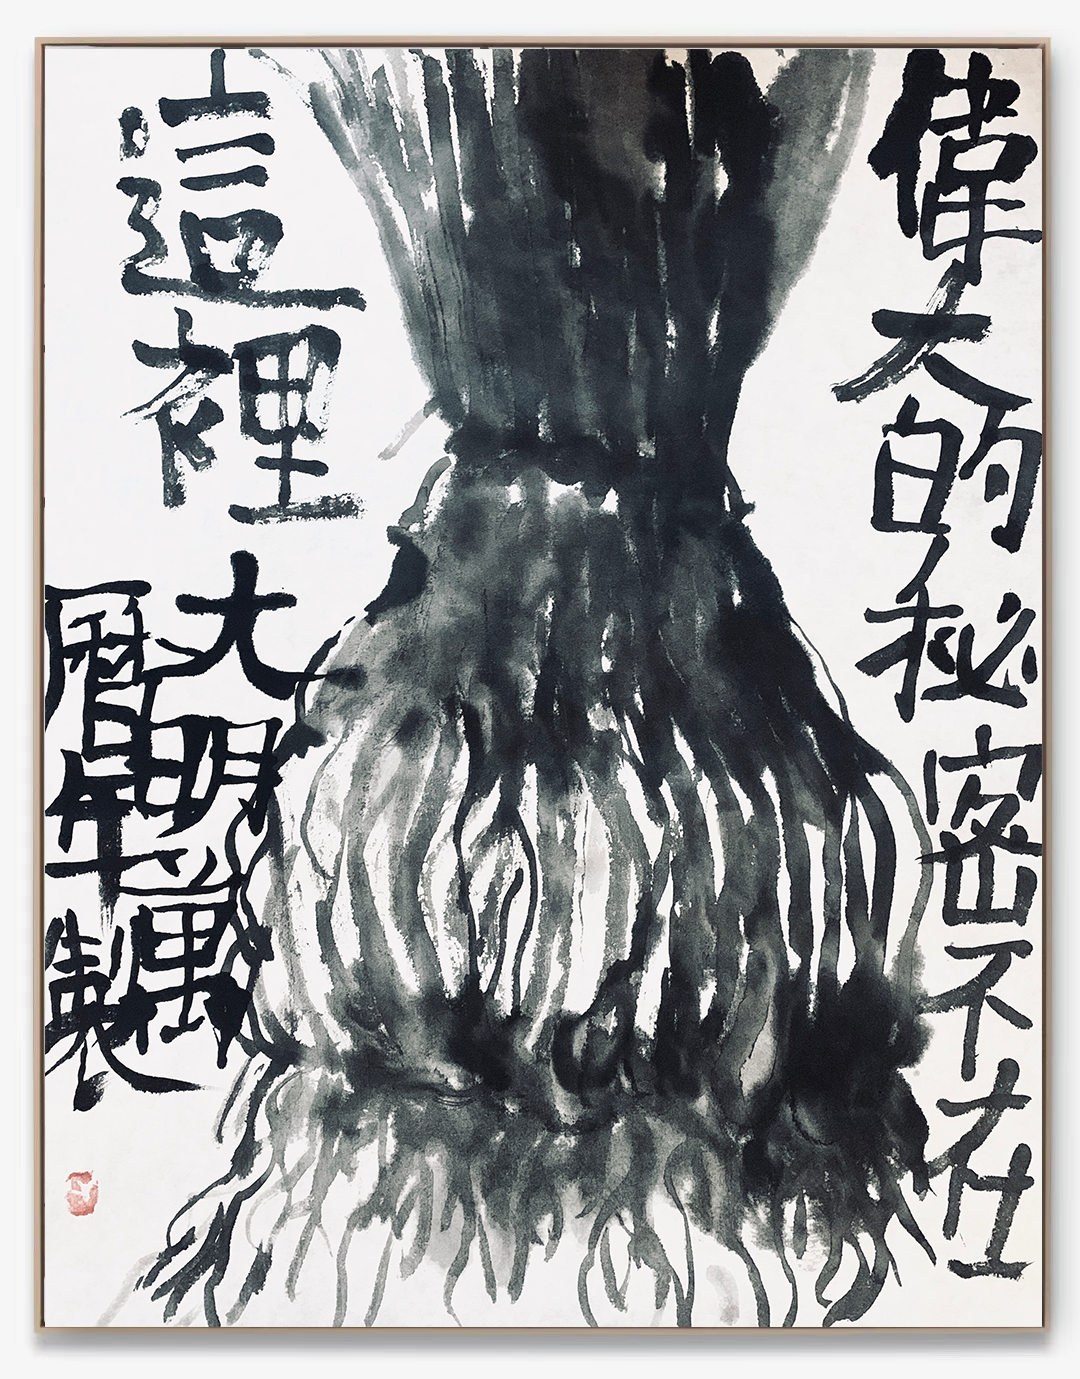 偉大的秘密不在
這裡
大明萬
曆年製